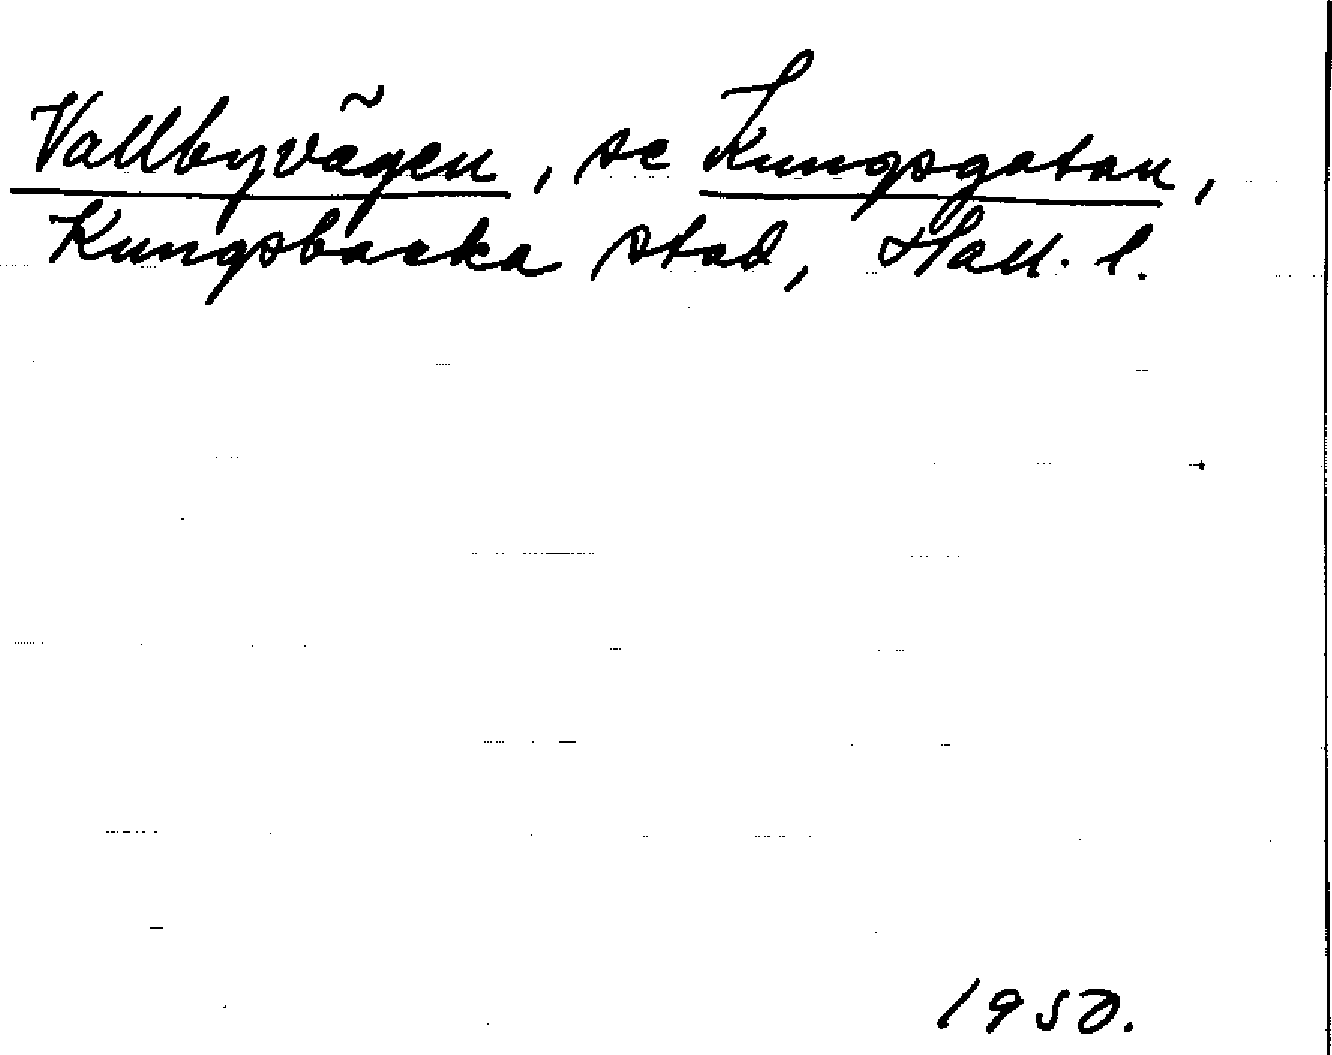 Vallbyvägen, se Kungsgatan,
Kungsbacka stad, Hall. l.
1950.